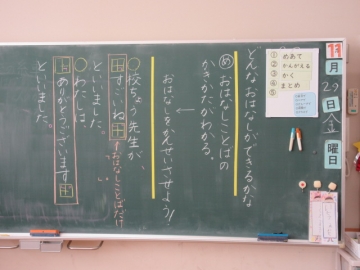 11月29日金曜日
①めあて
②かんがえる
③かく
④まとめ
⑤
どんなおはなしができるかな
め おはなしことばの
かきかたがわかる。
↓
おはなしをかんせいさせよう!
○校ちょう先生が、
「すごいね」
おはなしことばだけ
といいました。
○わたしは、
「ありがとうございます」
といいました。